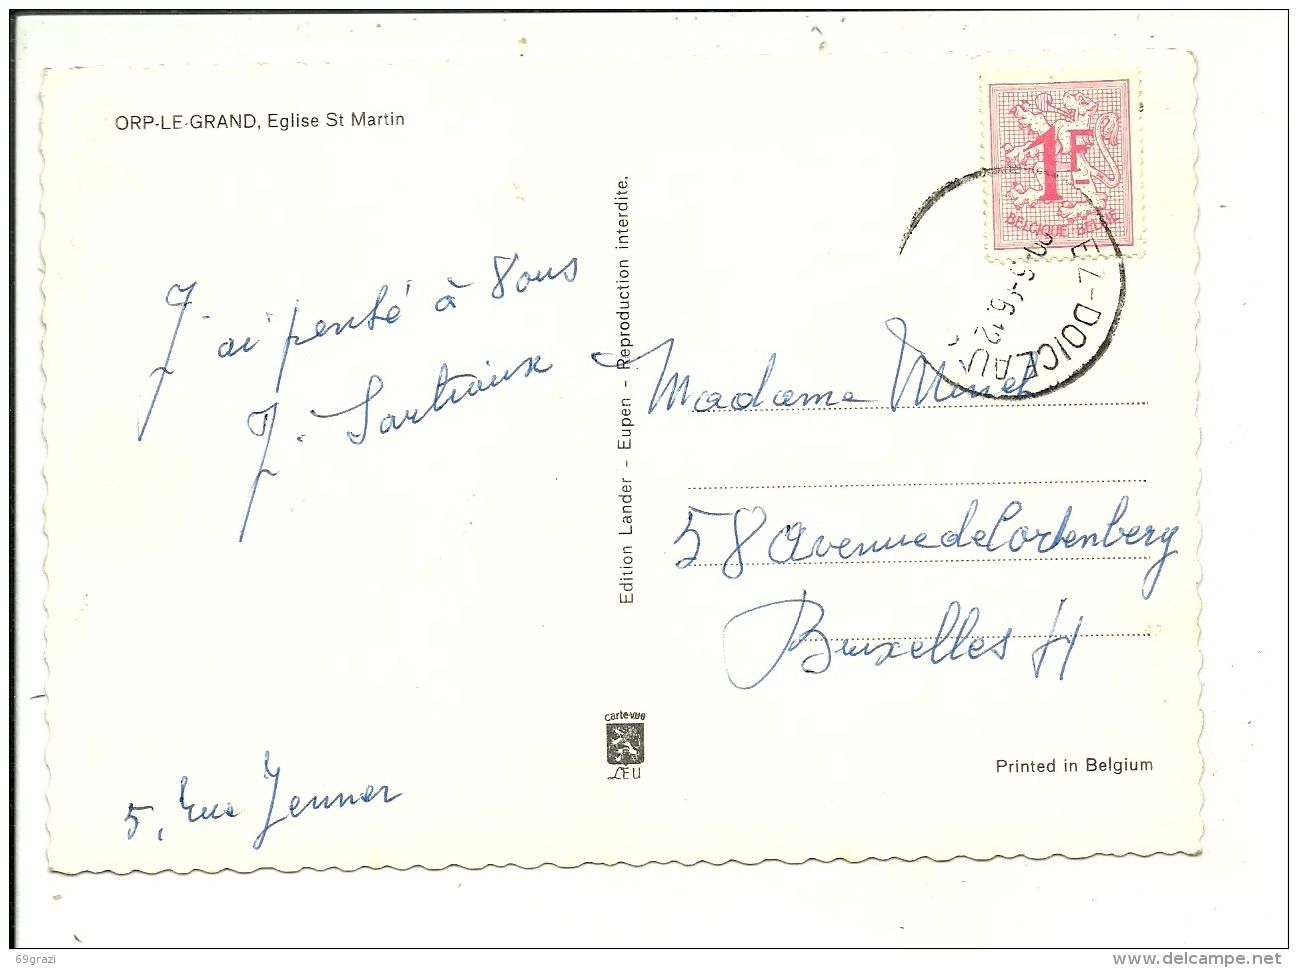 ORP-LE-GRAND, Eglise St Martin
1F
BELGIQUE BELGIE
EZ-DOICEAU
J'ai pensé à Vous
J. Sartiaux
Edition Lander - Eupen - Reproduction interdite.
Madame Minet
58 Avenue de Cortenberg
Bruxelles 4
carte-vue
LEU
Printed in Belgium
5, Rue Jenner
69grazi
delcampe.net